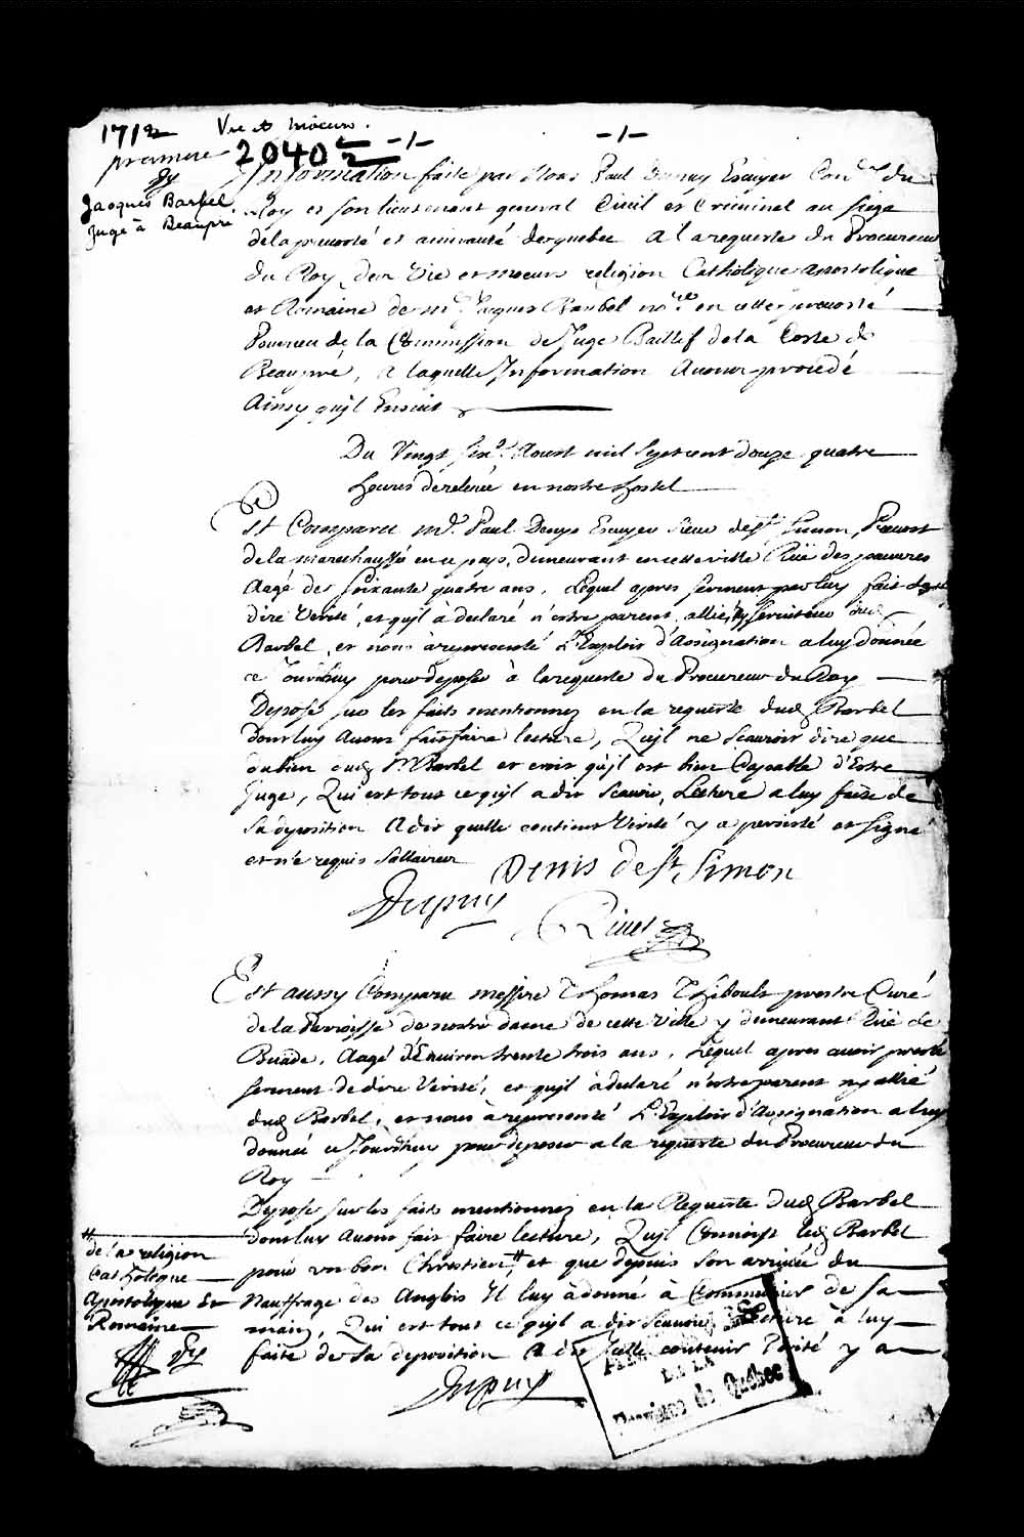 1712
Vie et moeurs.
-/- -/-
premiere
2040 2
Jacques Barbel
Juge à Beaupré
Information faite par Nous Paul Dupuy Escuyer Con.er du
Roy et son lieutenant general Civil et Criminel au siege
dela prevosté et amirauté de quebec A la requeste du Procureur
du Roy, des Vie et moeurs religion Catholique apostolique
et Romaine de m.e Jacques Barbel no.re en cette prevosté
Pourveu de la Commission de Juge Baillif de la Coste de
Beaupré, a laquelle Information Avons procedé
Ainsy qu'jl Ensuit
Du Vingt Aoust mil Sept cent douze quatre
heures de relevée en nostre hostel
Est Comparu m.e Paul Denys Escuyer Sieur de S.t Simon, Prevost
de la mareschaussé en ce pays, demeurant en cette ville Rüe des pauvres
Aagé de Soixante quatre ans, Lequel apres serment par luy fait de
dire Verité, et qu'jl à declaré n'estre parent, allié, ny serviteur dud.
Barbel, et nous à representé L'Exploit d'Assignation a luy donnée
ce Jourdhuy pour deposer à la requeste du Procureur du Roy
Depose sur les faits mentionnez en la requeste dud. Barbel
dont luy Avons fait faire lecture, Qu'jl ne scauroit dire que
du bien dud. S.r Barbel et croit qu'jl est bien Capable d'Estre
Juge, Qui est tout ce qu'jl a dit Scavoir, Lecture a luy faite de
Sa deposition A dit qu'elle contient Verité y a persisté et signé
et n'a requis sallaire
Denis de St. Simon
Dupuy
Rivet
Est aussy Comparu messire Thomas Thiboult prestre Curé
de la Parroisse de nostre dame de cette Ville y demeurant Rüe de
Buade, Aagé d'Environ trente trois ans, Lequel apres avoir presté
serment de dire Verité, et qu'jl à declaré n'estre parent ny allié
dud. Barbel, et nous à representé L'Exploit d'Assignation a luy
donnée ce Jourdhuy pour deposer a la requeste du Procureur du
Roy
Depose sur les faits mentionnez en la Requeste dud. Barbel
dont luy Avons fait faire lecture, Qu'jl Connoist led. Barbel
pour un bon Chrestien # et que depuis son arrivée du
# de la religion
Catholique
Apostolique Et
Romaine
Nauffrage des Anglois Il luy à donné à Communier de sa
main, Qui est tout ce qu'jl a dit Scavoir, Lecture à luy
faite de Sa deposition A dit Icelle contenir Verité y a
Dupuy
DE LA
Province de Québec